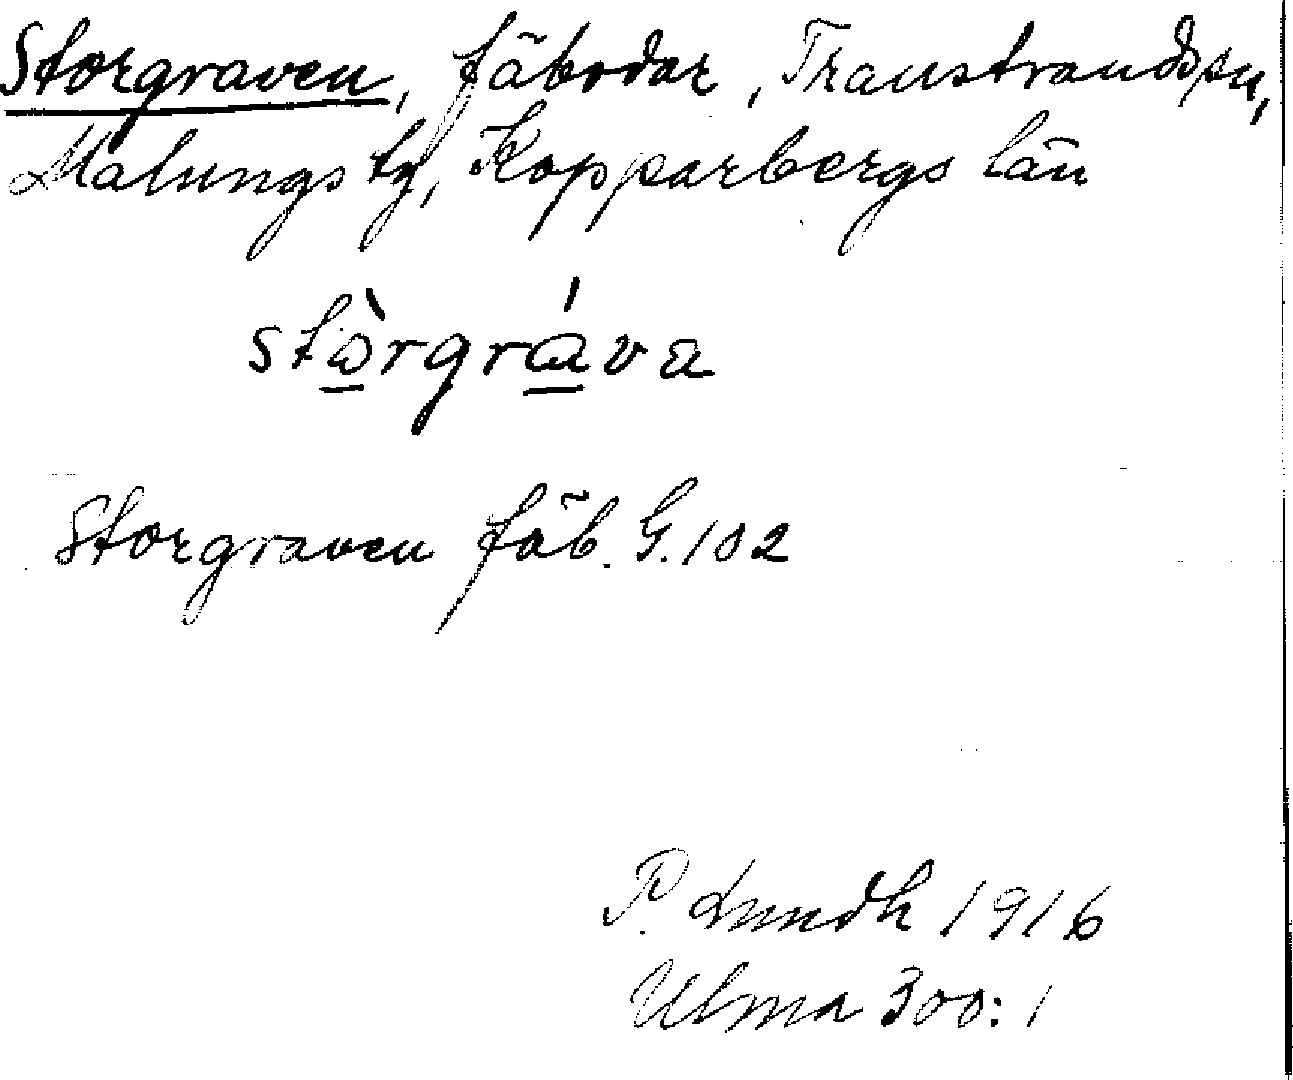 Storgraven, fäbodar, Transtrands sn,
Malungs tg, Kopparbergs län
stò̱rgrá̱va
Storgraven fäb. G. 102
P. Lundh 1916
Ulma 300:1